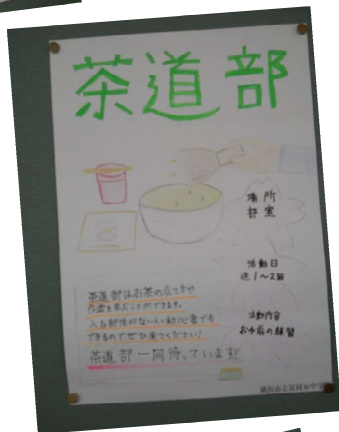 茶道部
場所
部室
活動日
週1〜2回
活動内容
お手前の練習
茶道部はお茶の立て方や
作法を学ぶことができます。
できるのでぜひ来てください!
茶道部一同待っています!